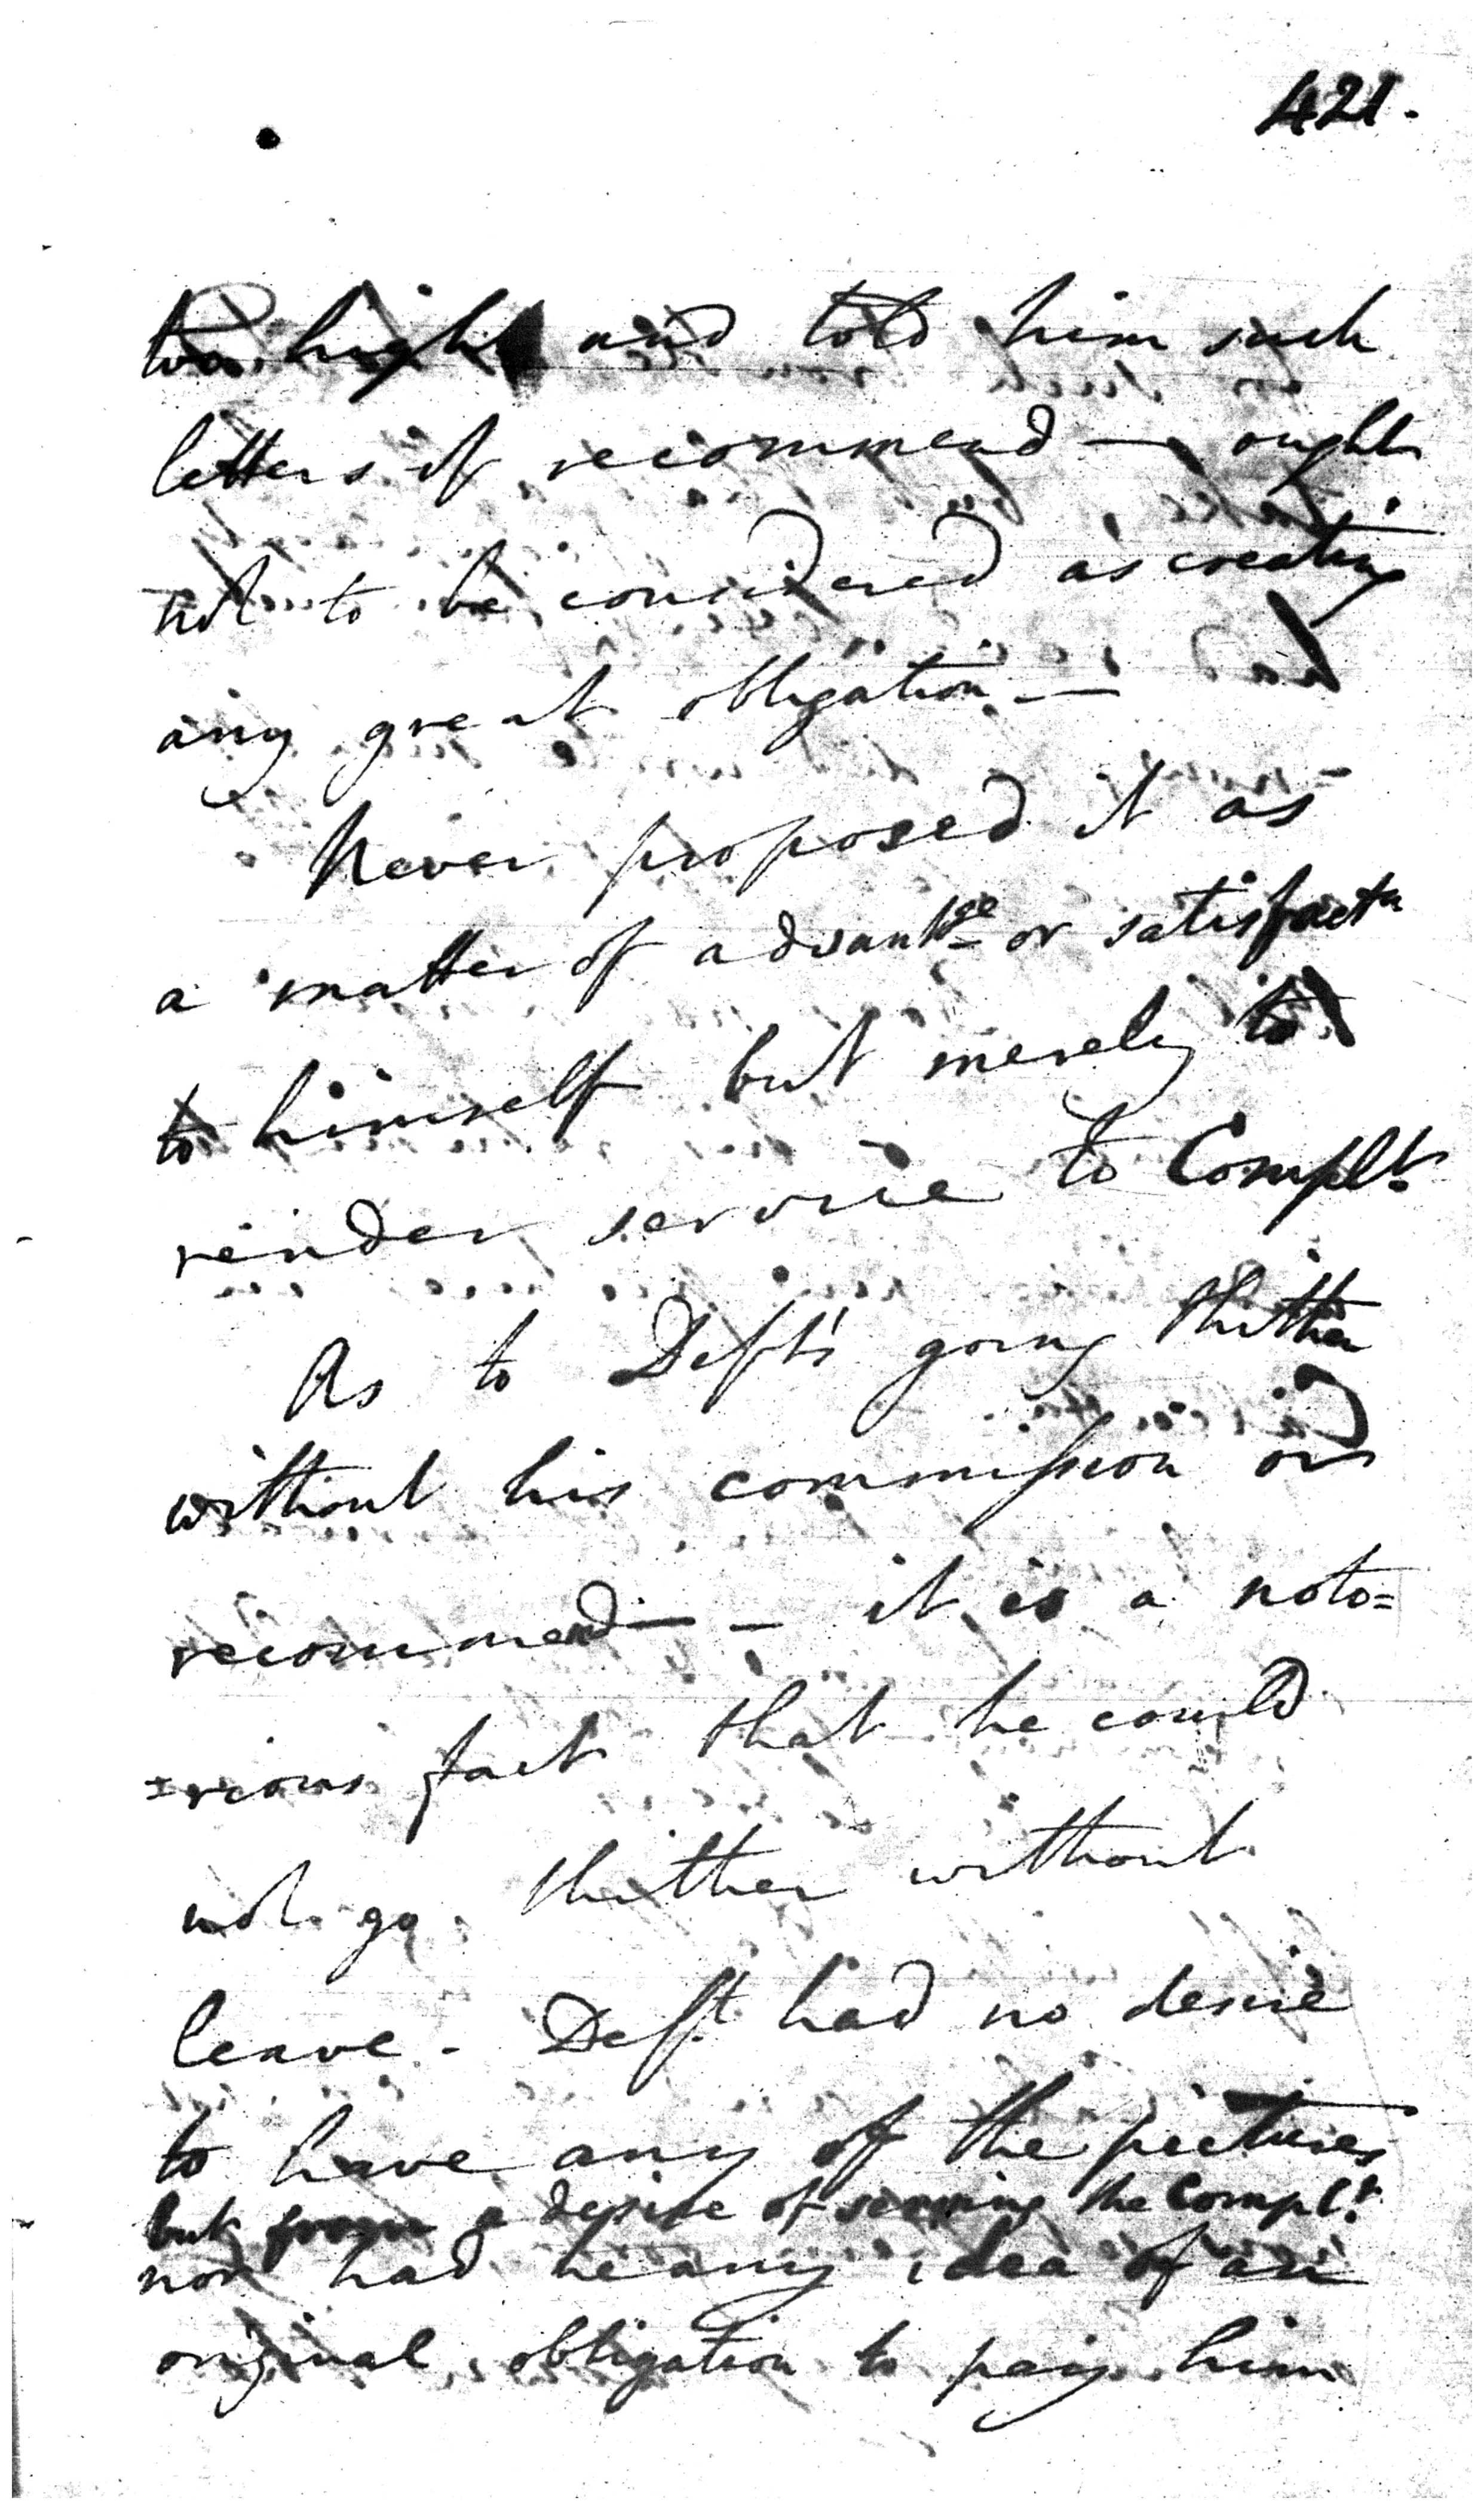 421.
too high and told him such
letters of recommend — ought
not to be considered as creating
any great obligation —
Never proposed it as
a matter of advantge or satisfactn
to himself but merely to
render service to Complt.
As to Deft's going thither
without his commission or
recommend — it is a noto=
=rious fact that he could
not go thither without
leave - Deft had no desire
to have any of the pictures
but from a desire of serving the Complt.
nor had he any idea of an
original obligation to pay him